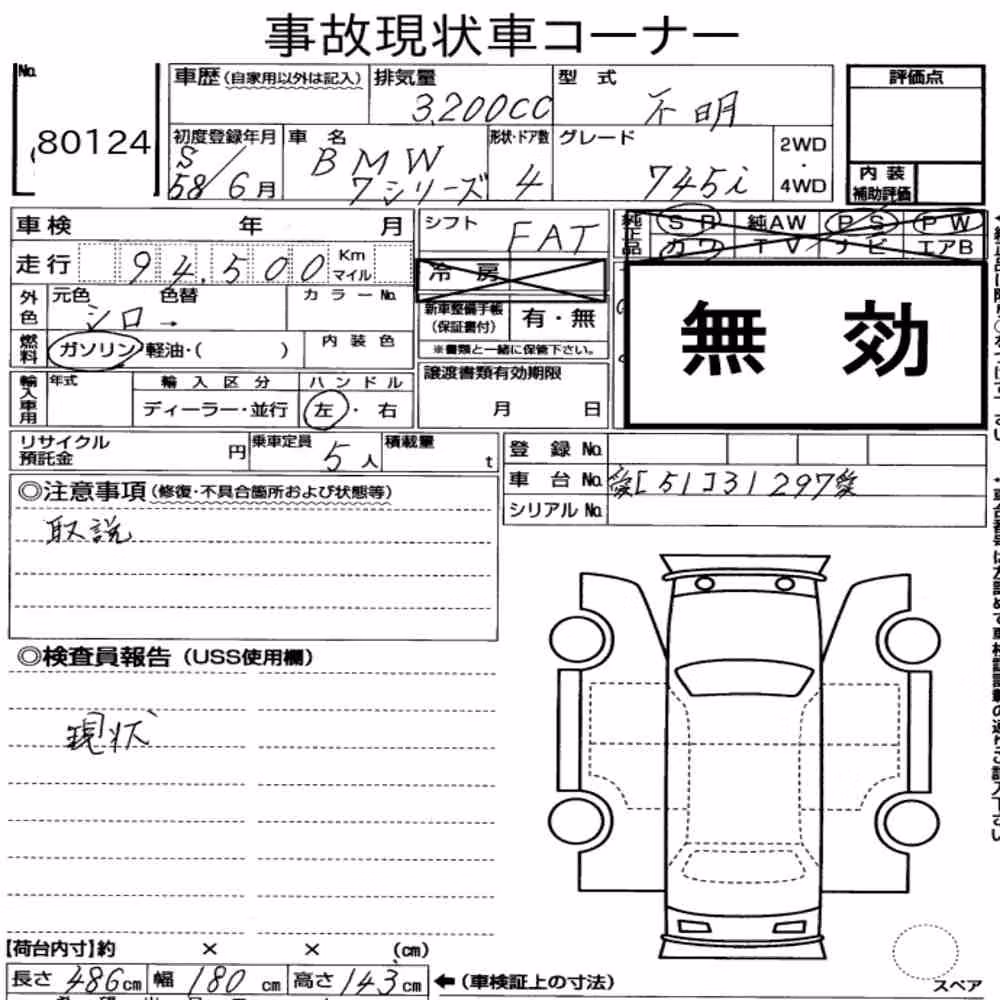 事故現状車コーナー
No. 80124
車歴(自家用以外は記入) 排気量 3,200CC 型式 不明 評価点
初度登録年月 S58/6月 車名 BMW 7シリーズ 形状・ドア数 4 グレード 745i 2WD・4WD 内装補助評価
車検 年 月 シフト FAT 純正品 SR 純AW PS PW
カワ TV ナビ エアB
走行 94,500 Km マイル 冷房
外色 元色 シロ 色替 → カラーNo. 新車整備手帳(保証書付) 有・無 無効
燃料 ガソリン 軽油・( ) 内装色 ※書類と一緒に保管下さい。
輸入車用 年式 輸入区分 ハンドル 譲渡書類有効期限
ディーラー・並行 左・右 月 日
リサイクル預託金 円 乗車定員 5人 積載量 t 登録No.
車台No. [51]31297
シリアルNo.
◎注意事項(修復・不具合箇所および状態等)
取説
◎検査員報告(USS使用欄)
現状
【荷台内寸】約 × × (cm)
長さ 486cm 幅 180cm 高さ 143cm ←(車検証上の寸法) スペア